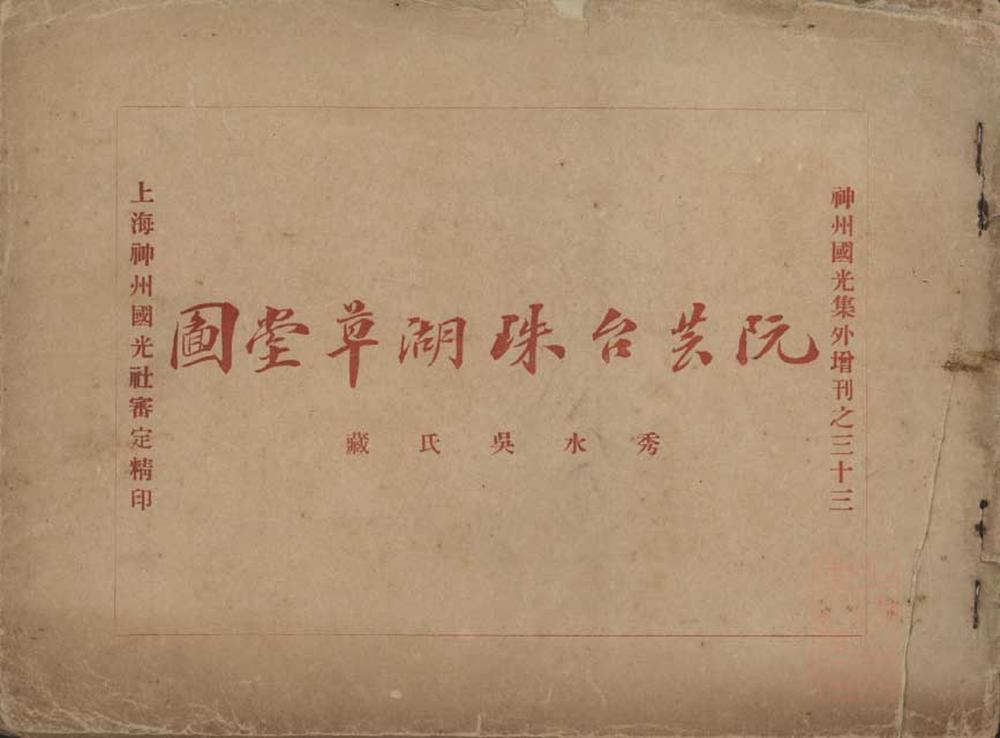 神州國光集外增刊之三十三
阮芸台珠湖草堂圖
秀水吳氏藏
上海神州國光社審定精印